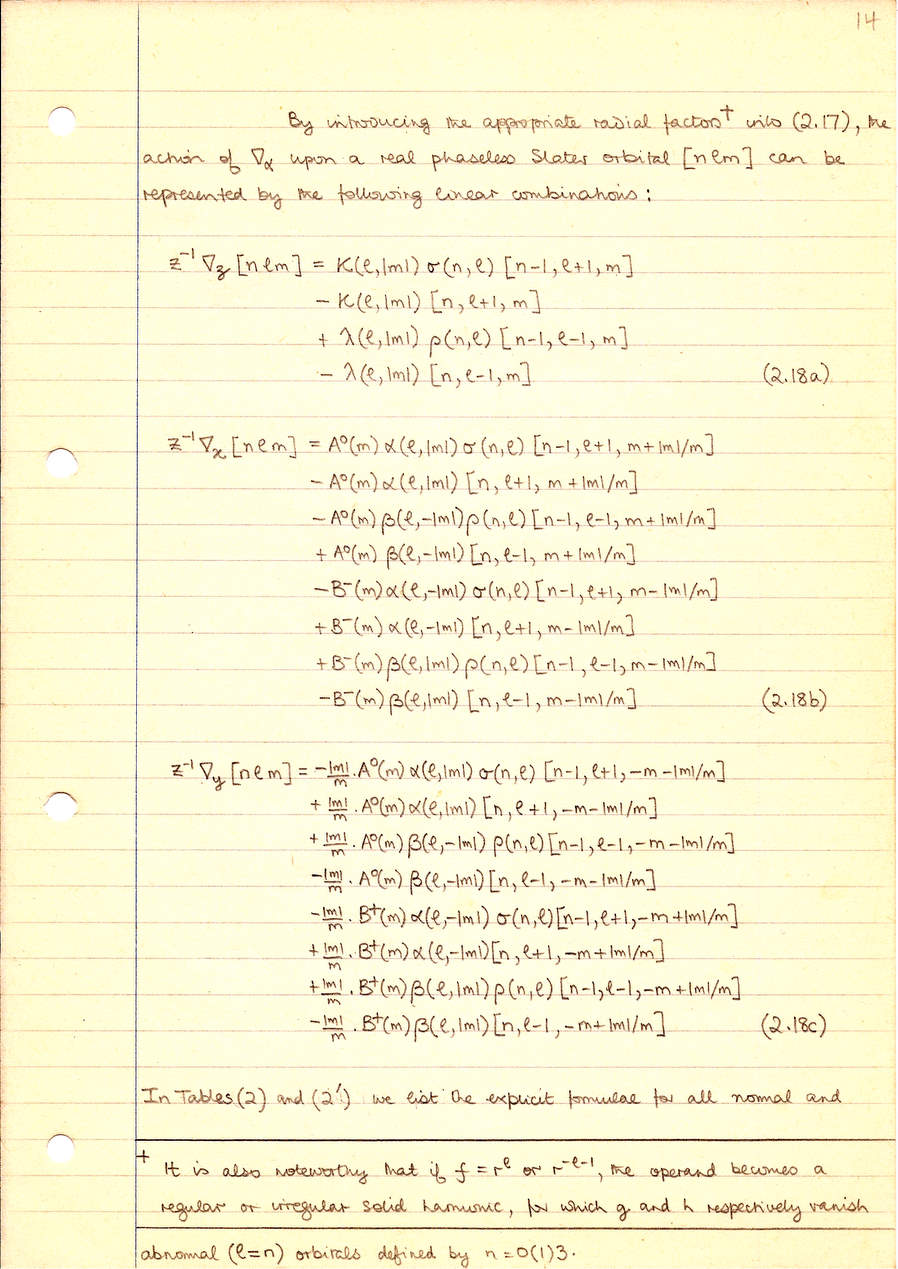 14
By introducing the appropriate radial factors† into (2.17), the
action of ∇α upon a real phaseless Slater orbital [nℓm] can be
represented by the following linear combinations:
z⁻¹ ∇z [nℓm] = K(ℓ,|m|) σ(n,ℓ) [n-1, ℓ+1, m]
- K(ℓ,|m|) [n, ℓ+1, m]
+ λ(ℓ,|m|) ρ(n,ℓ) [n-1, ℓ-1, m]
- λ(ℓ,|m|) [n, ℓ-1, m] (2.18a)
z⁻¹ ∇x [nℓm] = A⁰(m) α(ℓ,|m|) σ(n,ℓ) [n-1, ℓ+1, m+|m|/m]
- A⁰(m) α(ℓ,|m|) [n, ℓ+1, m+|m|/m]
- A⁰(m) β(ℓ,-|m|) ρ(n,ℓ) [n-1, ℓ-1, m+|m|/m]
+ A⁰(m) β(ℓ,-|m|) [n, ℓ-1, m+|m|/m]
- B⁻(m) α(ℓ,-|m|) σ(n,ℓ) [n-1, ℓ+1, m-|m|/m]
+ B⁻(m) α(ℓ,-|m|) [n, ℓ+1, m-|m|/m]
+ B⁻(m) β(ℓ,|m|) ρ(n,ℓ) [n-1, ℓ-1, m-|m|/m]
- B⁻(m) β(ℓ,|m|) [n, ℓ-1, m-|m|/m] (2.18b)
z⁻¹ ∇y [nℓm] = -|m|/m . A⁰(m) α(ℓ,|m|) σ(n,ℓ) [n-1, ℓ+1, -m-|m|/m]
+ |m|/m . A⁰(m) α(ℓ,|m|) [n, ℓ+1, -m-|m|/m]
+ |m|/m . A⁰(m) β(ℓ,-|m|) ρ(n,ℓ) [n-1, ℓ-1, -m-|m|/m]
- |m|/m . A⁰(m) β(ℓ,-|m|) [n, ℓ-1, -m-|m|/m]
- |m|/m . B⁺(m) α(ℓ,-|m|) σ(n,ℓ) [n-1, ℓ+1, -m+|m|/m]
+ |m|/m . B⁺(m) α(ℓ,-|m|) [n, ℓ+1, -m+|m|/m]
+ |m|/m . B⁺(m) β(ℓ,|m|) ρ(n,ℓ) [n-1, ℓ-1, -m+|m|/m]
- |m|/m . B⁺(m) β(ℓ,|m|) [n, ℓ-1, -m+|m|/m] (2.18c)
In Tables (2) and (2') we list the explicit formulae for all normal and
† It is also noteworthy that if f = r^ℓ or r^-ℓ-1, the operand becomes a
regular or irregular solid harmonic, for which g and h respectively vanish
abnomal (ℓ=n) orbitals defined by n=0(1)3.